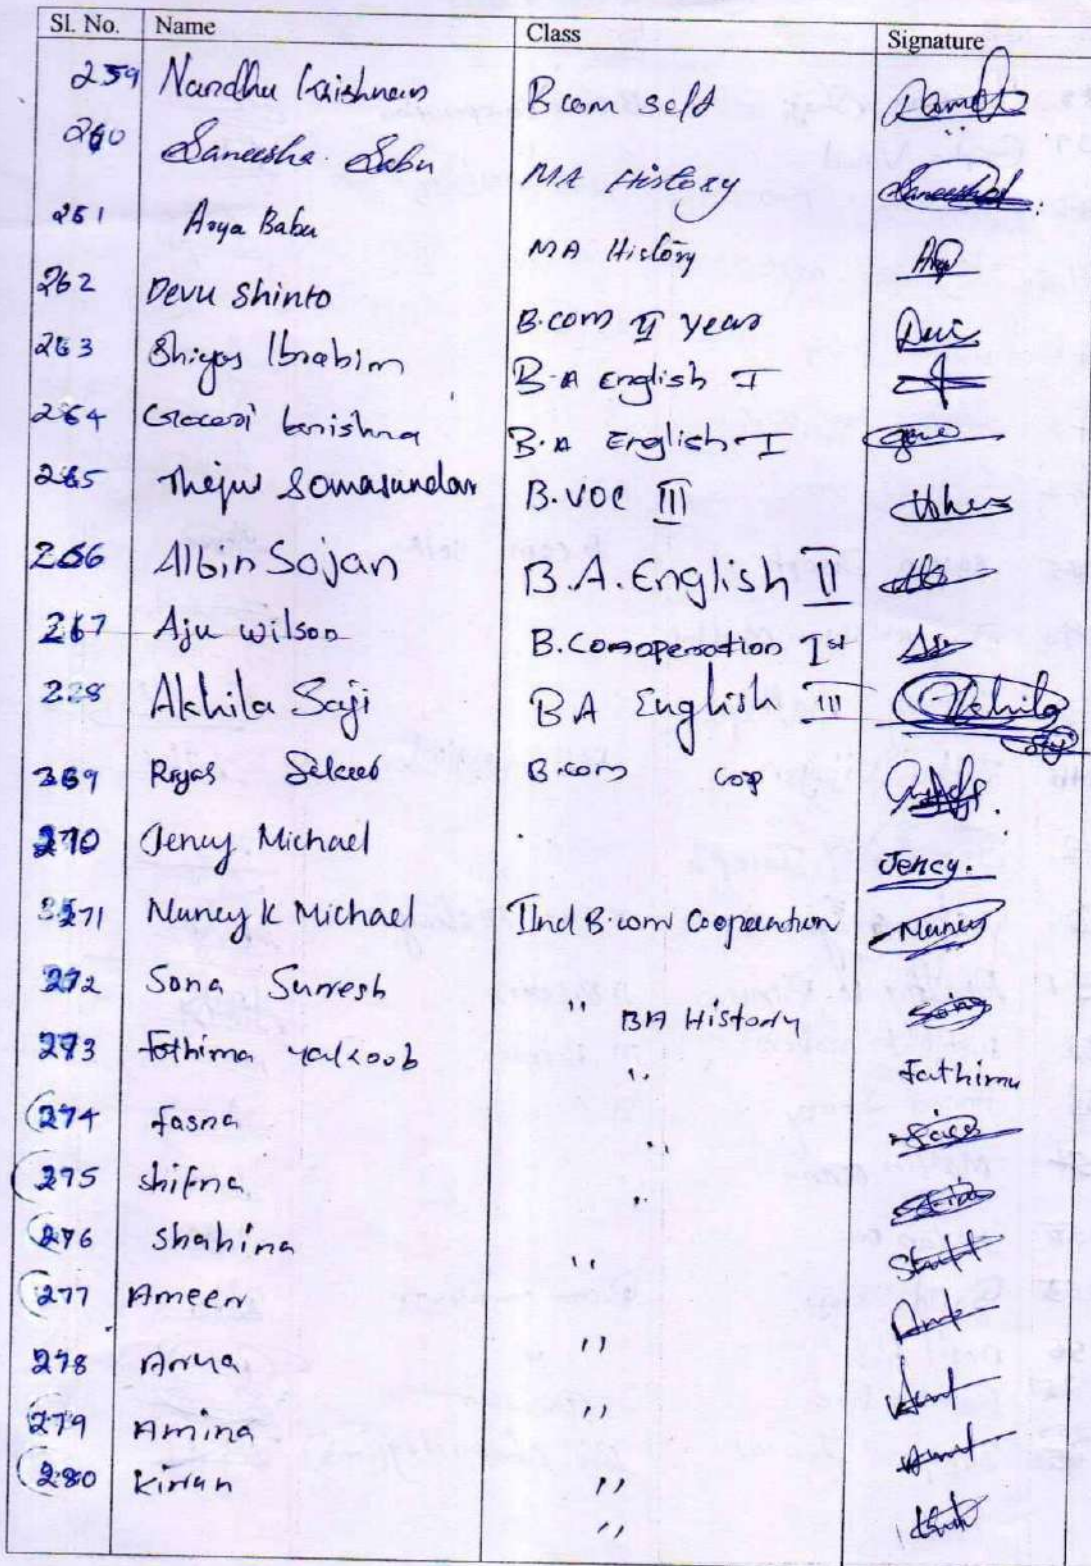 Sl. No. Name Class Signature
259 Nandhu Krishnan B com self
260 Saneesha Sabu MA History
261 Arya Babu MA History
262 Devu Shinto B.com II year
263 Shiyas Ibrahim B.A English I
264 Krishna B.A English I
265 Thejus Somasundar B.VOC III
266 Albin Sojan B.A. English II
267 Aju Wilson B.Com I st
228 Akhila Saji BA English III Akhila
269 B.com
270 Jency Michael Jency.
271 Nancy K Michael IInd B.com Cooperation Nancy
272 Sona Surresh " BA History Sona
273 Fathima Yakoob " Fathima
274 Fasna "
275 Shifna "
276 Shahina "
277 Ameer "
278 "
279 Amina "
280 Kiran "
"